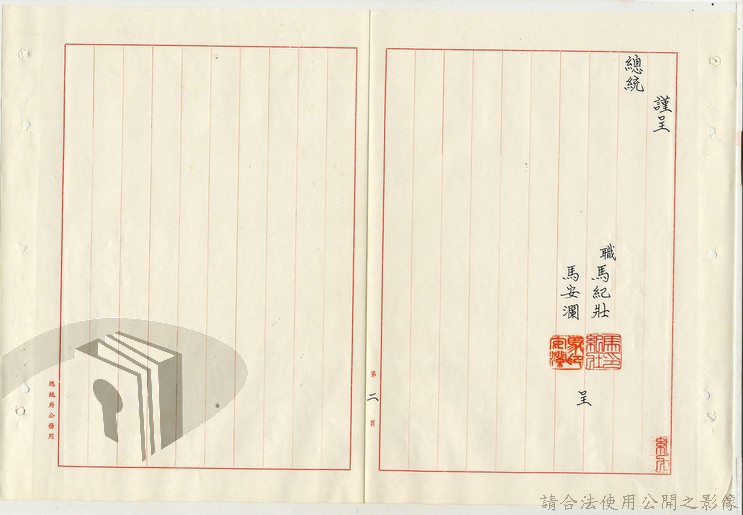 謹呈
總統
職馬紀壯
馬安瀾
呈
第二頁
總統府公務用
請合法使用公開之影像